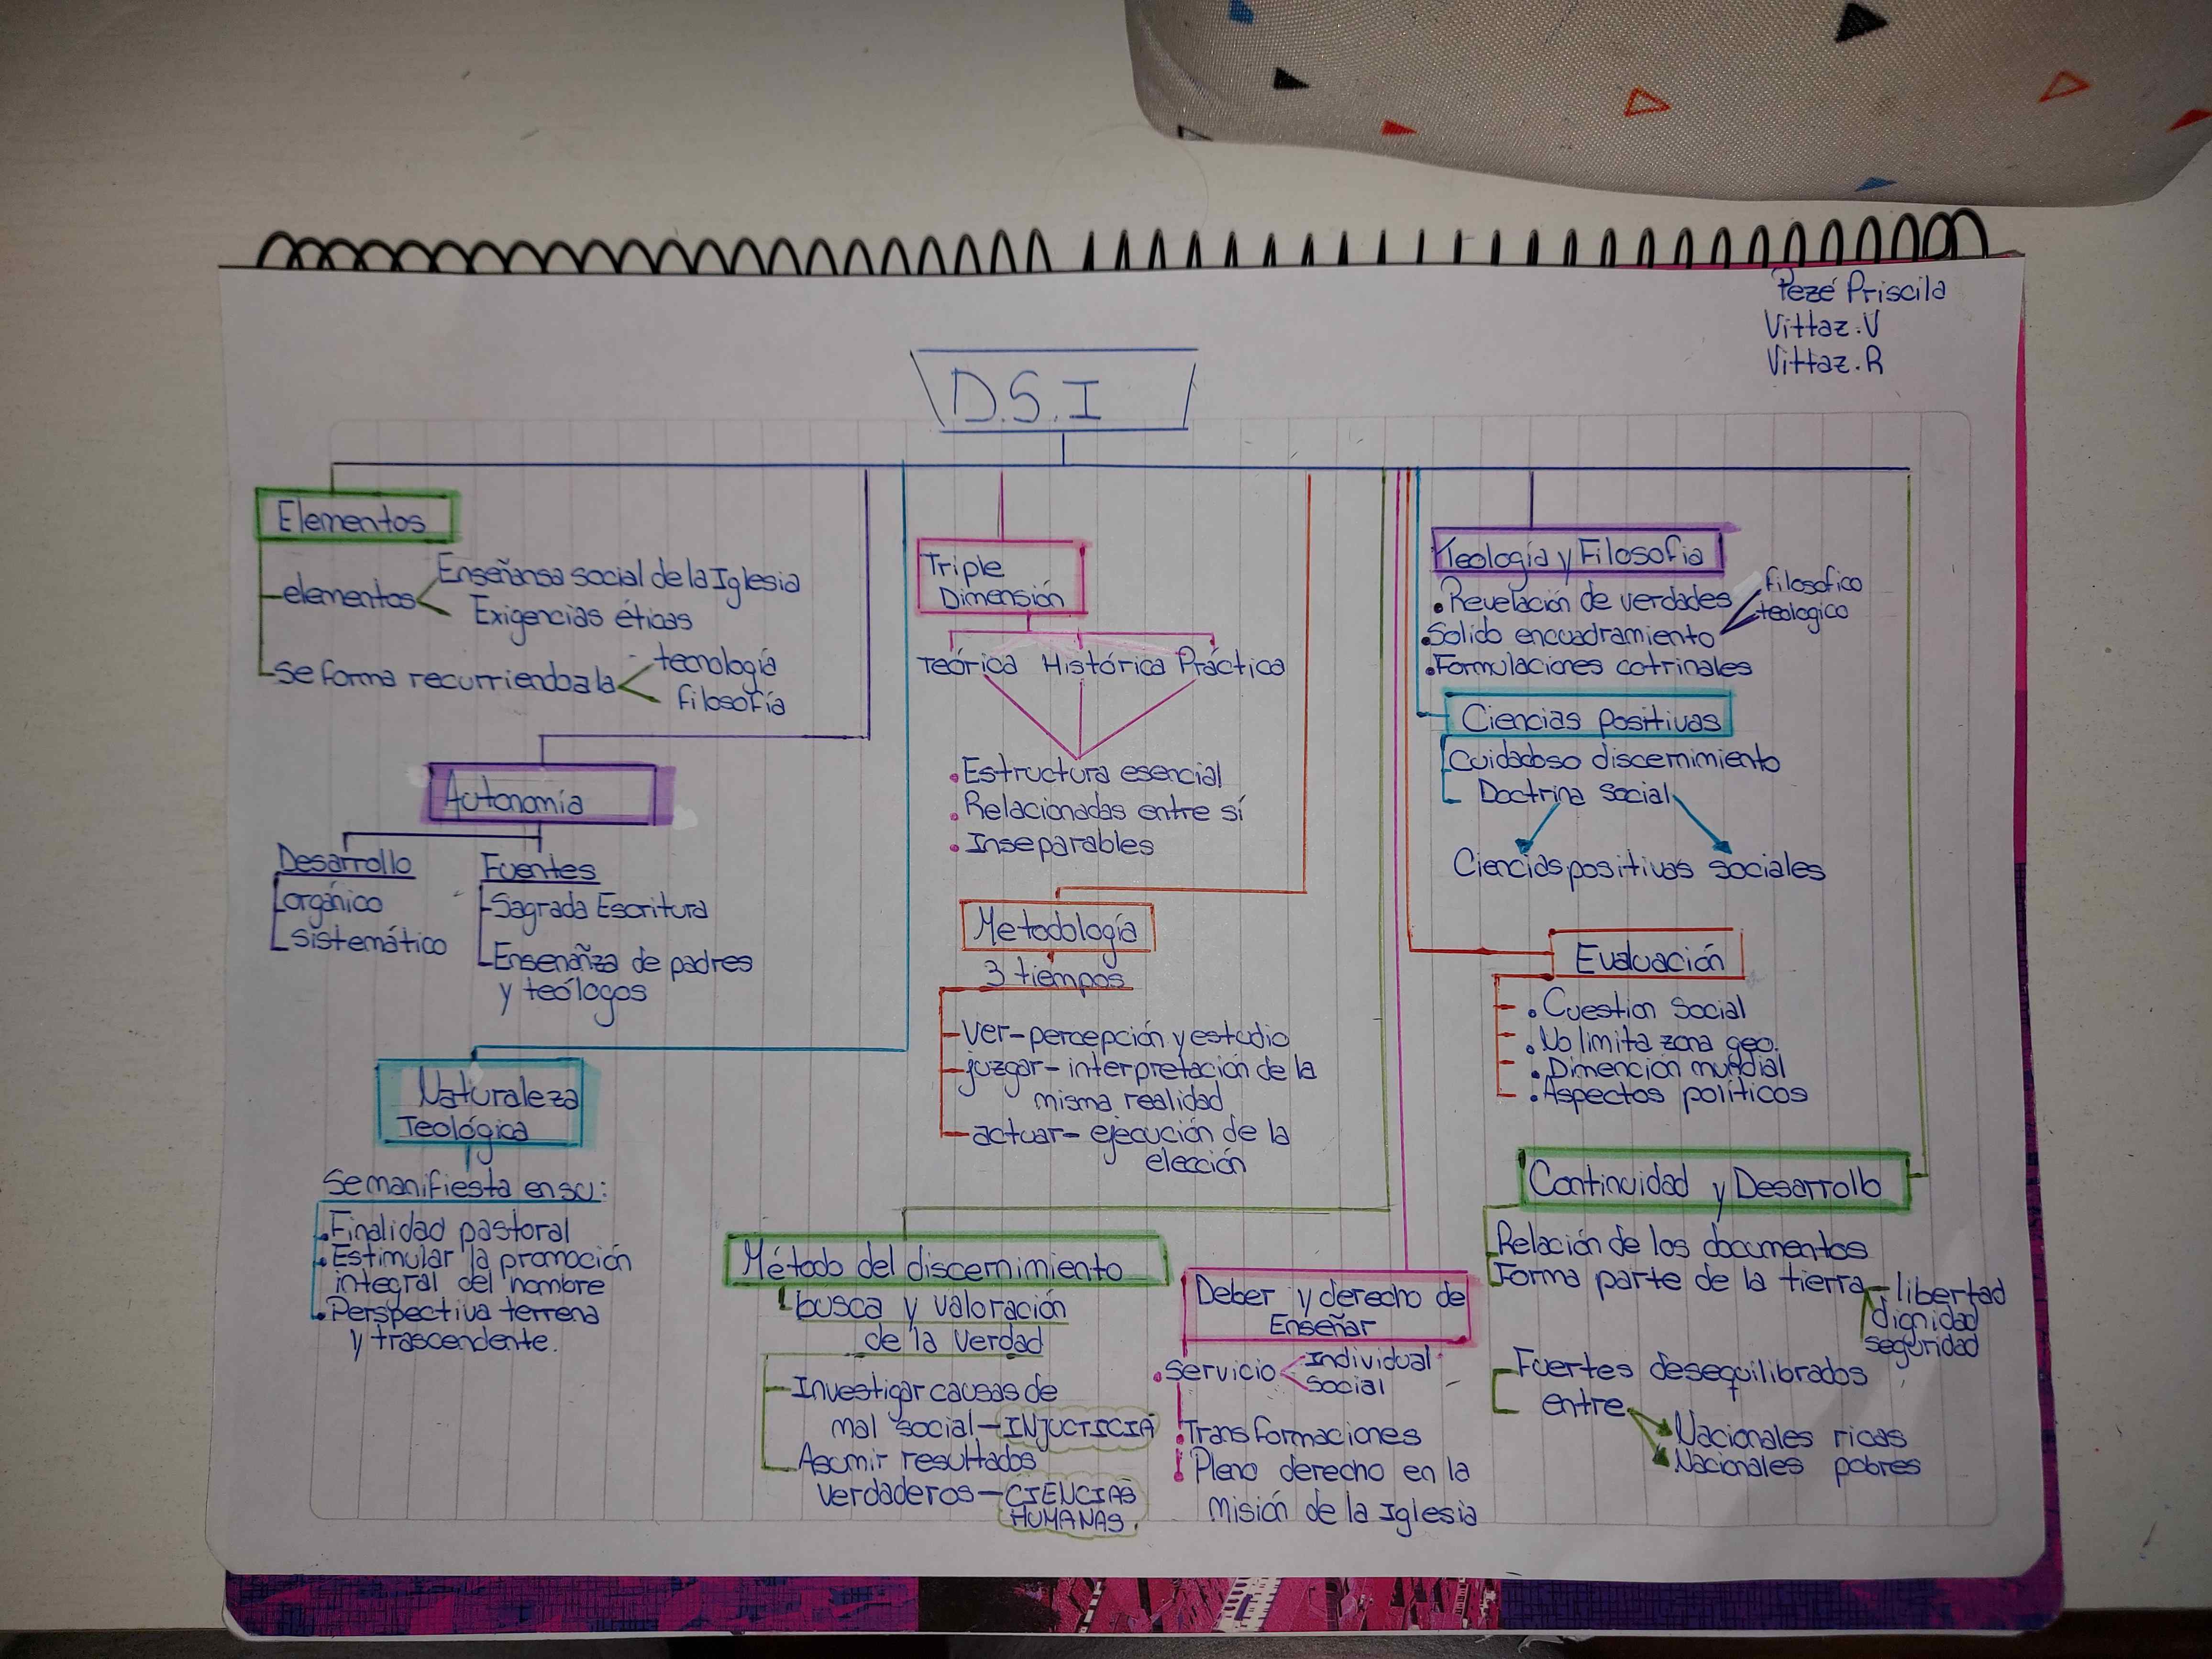 Pezé Priscila
Vittaz.V
Vittaz.R
D.S.I
Elementos
elementos
Enseñansa social de la Iglesia
Exigencias éticas
Se forma recurriendo a la
tecnología
filosofía
Autonomía
Desarrollo
orgánico
sistemático
Fuentes
Sagrada Escritura
Enseñañza de padres
y teólogos
Naturaleza
Teológica
Se manifiesta en su:
Finalidad pastoral
Estimular la promoción
integral del hombre
Perspectiva terrena
y trascendente.
Triple
Dimensión
Teórica Histórica Práctica
Estructura esencial
Relacionadas entre sí
Inseparables
Metodología
3 tiempos
Ver-percepción y estudio
juzgar-interpretación de la
misma realidad
actuar-ejecución de la
elección
Método del discernimiento
busca y valoración
de la verdad
Investigar causas de
mal social-INJUCTICIA
Asumir resultados
verdaderos-CIENCIAS
HUMANAS.
Deber y derecho de
Enseñar
Servicio
Individual
Social
Transformaciones
Pleno derecho en la
Misión de la Iglesia
Teología y Filosofia
Revelación de verdades
Solido encuadramiento
filosofico
teologico
Formulaciones cotrinales
Ciencias positivas
Cuidadoso discernimiento
Doctrina social
Ciencias positivas sociales
Evaluación
Cuestion Social
No limita zona geo.
Dimención mundial
Aspectos políticos
Continuidad y Desarrollo
Relación de los documentos
Forma parte de la tierra-libertad
dignidad
seguridad
Fuertes desequilibrados
entre
Nacionales ricas
Nacionales pobres